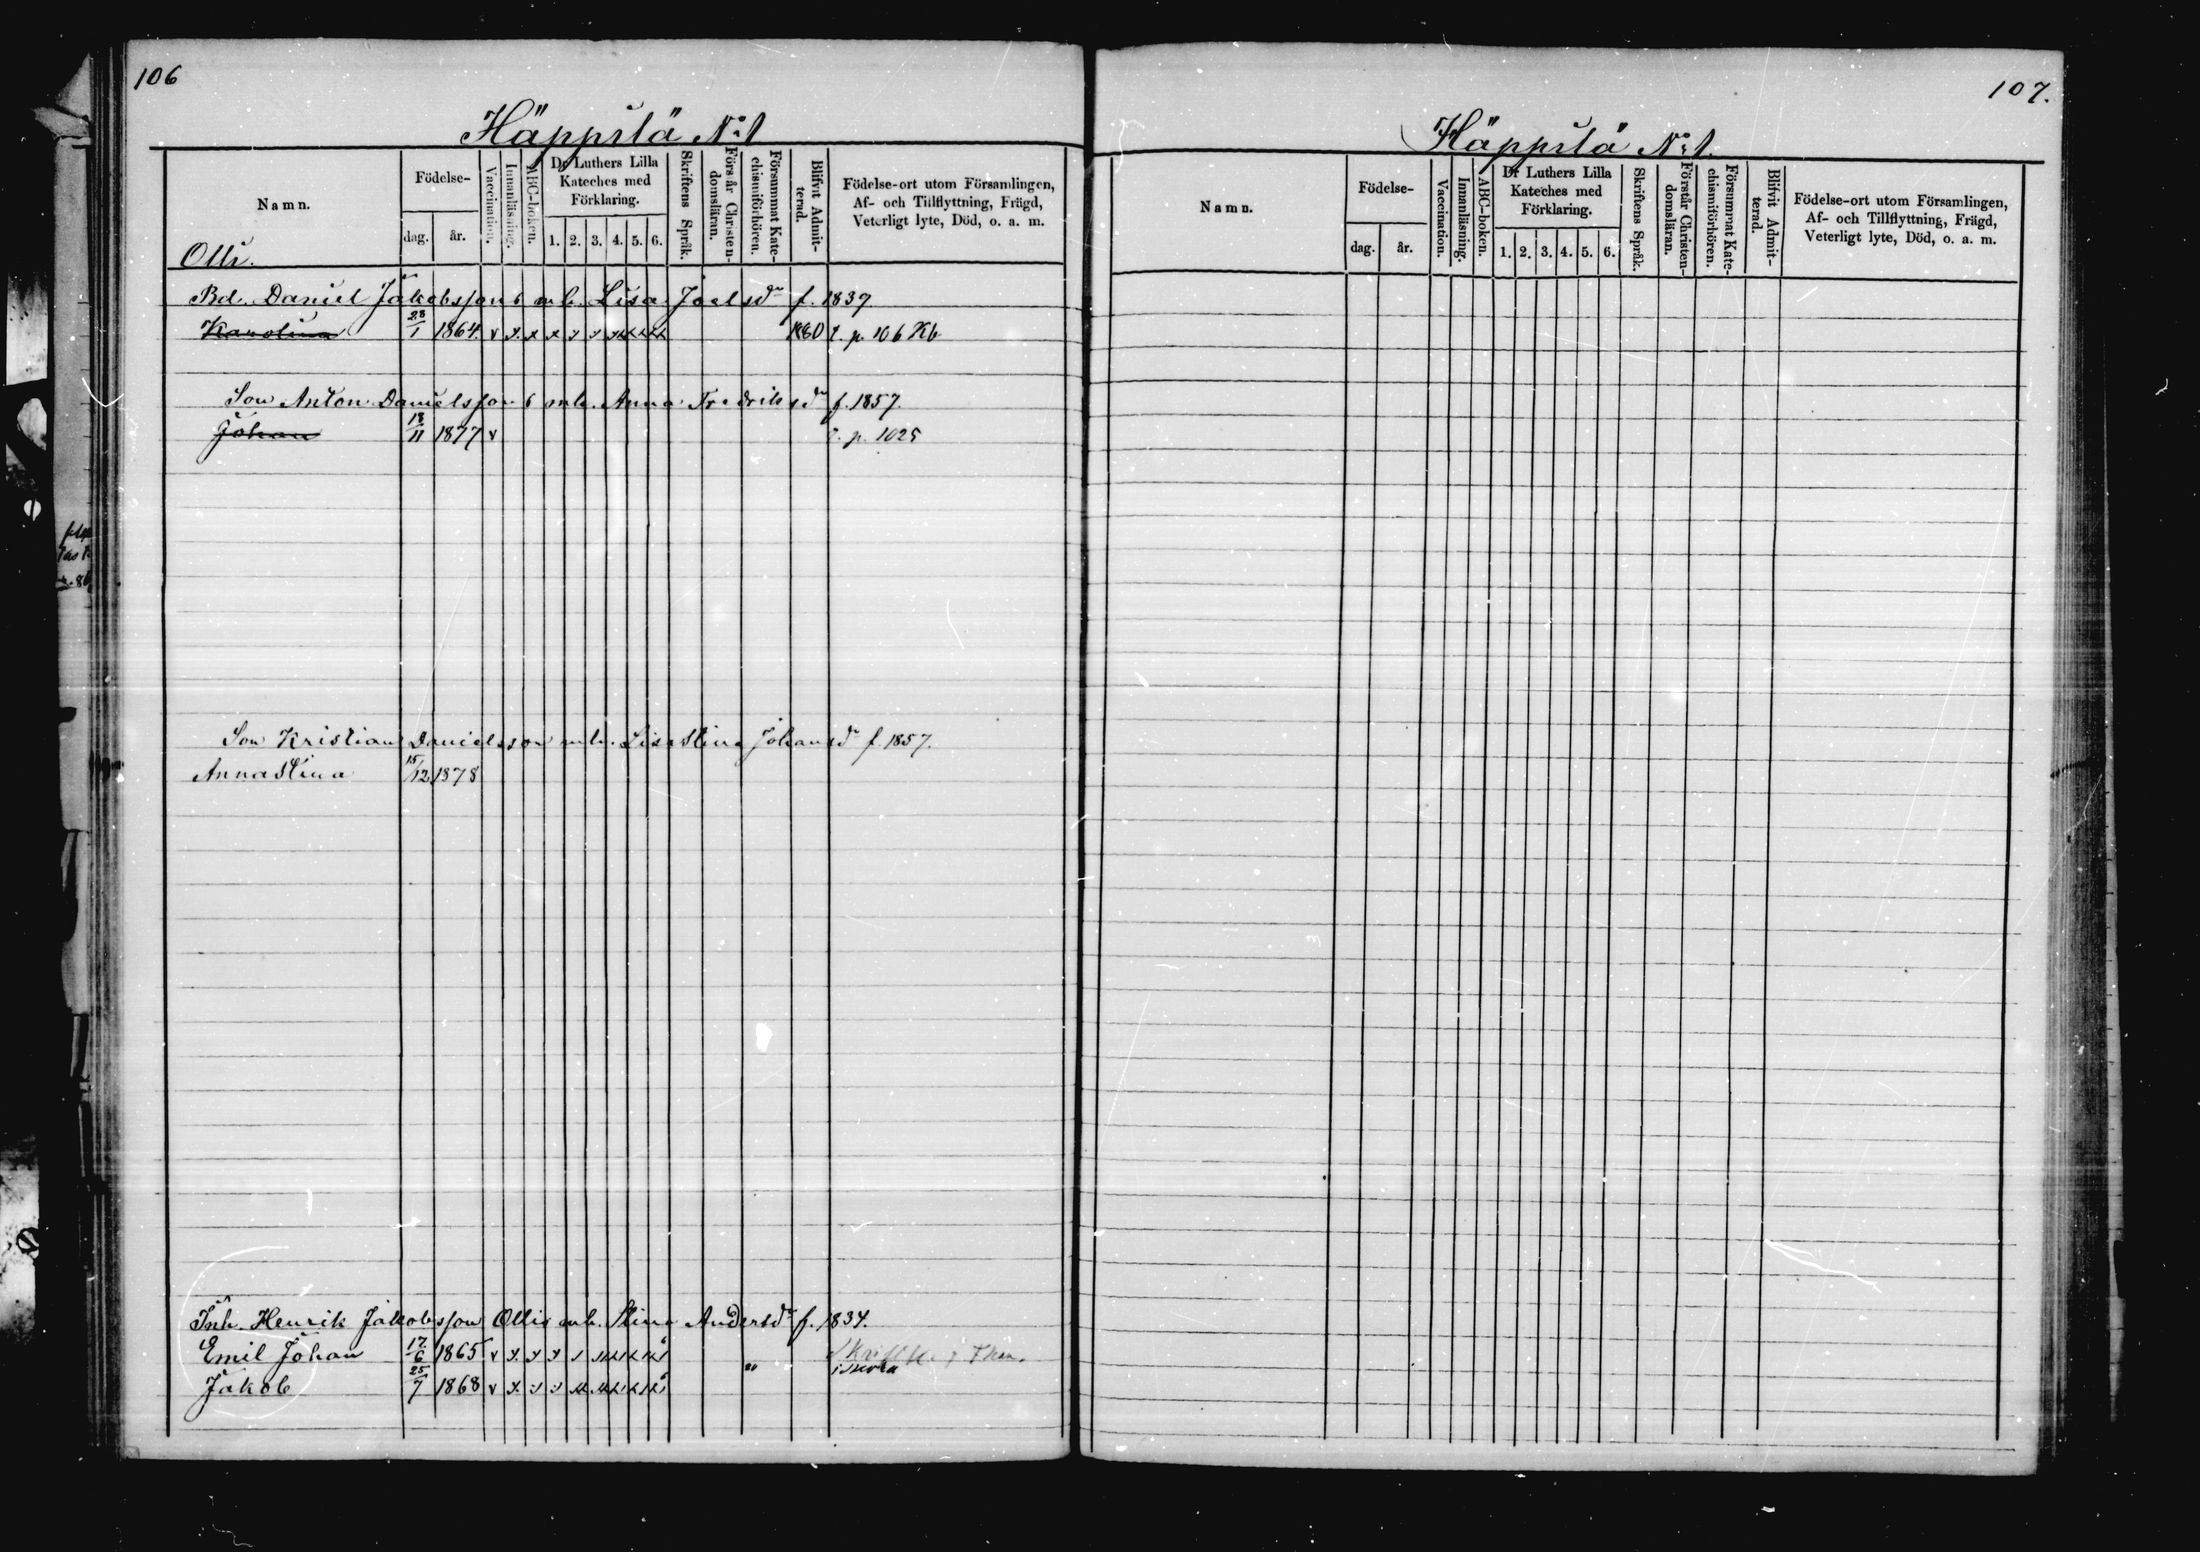 106
Häppilä No 1
Namn.
Födelse-
dag.
år.
Vaccination.
Innanläsning.
ABC-boken.
Dr Luthers Lilla
Kateches med
Förklaring.
1. 2. 3. 4. 5. 6.
Skriftens Språk.
Förstår Christen-
domsläran.
Försummat Kate-
chismiförhören.
Blifvit Admit-
terad.
Födelse-ort utom Församlingen,
Af- och Tillflyttning, Frägd,
Veterligt lyte, Död, o. a. m.
Olli.
Bd. Daniel Jakobsson o mh. Lisa Joelsdr f. 1837
Karolina 28/1 1864 v x x x 1880 t. p. 106 Kb
Son Anton Danielsson o mh. Anna Fredriksdr f. 1857.
Johan 13/11 1877 v t. p. 1025
Son Kristian Danielsson mh. Lisa Stina Johansdr f. 1857.
Anna Stina 15/12 1878
Inh. Henrik Jakobsson Ollis mh. Stina Andersdr f. 1834.
Emil Johan 17/6 1865 v x x x
Jakob 25/7 1868 v x x x " i skola
107.
Häppilä No 1.
Namn.
Födelse-
dag.
år.
Vaccination.
Innanläsning.
ABC-boken.
Dr Luthers Lilla
Kateches med
Förklaring.
1. 2. 3. 4. 5. 6.
Skriftens Språk.
Förstår Christen-
domsläran.
Försummat Kate-
chismiförhören.
Blifvit Admit-
terad.
Födelse-ort utom Församlingen,
Af- och Tillflyttning, Frägd,
Veterligt lyte, Död, o. a. m.